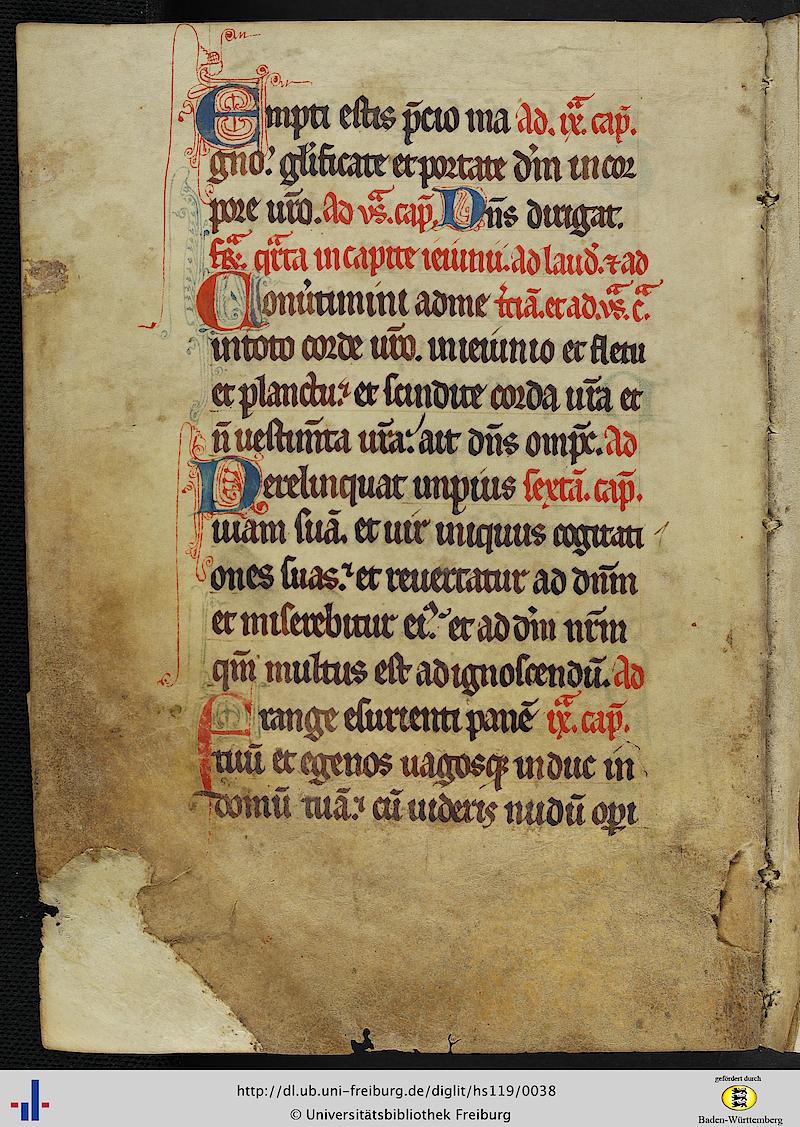 Empti estis p̄cio ma Ad. ix̊. cap̄.
gno. gl̄ificate et portate dm̄ in cor
pore ur̄o. Ad vs̊. cap̄. Dn̄s dirigat.
fr̊. qr̄ta in capite ieiunii. Ad laud. ⁊ ad
Conūtimini ad me t̄ciā. et ad. vs̊. c̊.
in toto corde ur̄o. in ieiunio et fletu
et planctu. et scindite corda ur̄a et
n̄ uestim̄ta ur̄a. ait dn̄s omp̄c. Ad
Derelinquat impius sextā. cap̄.
uiam suā. et uir iniquus cogitati
ones suas. et reuertatur ad dn̄m
et miserebitur eiꝰ. et ad dm̄ nr̄m
qm̄ multus est ad ignoscendū. Ad
Frange esurienti panē ix̊. cap̄.
tuū et egenos uagosqꝫ induc in
domū tuā. cū uideris nudū oꝑi
http://dl.ub.uni-freiburg.de/diglit/hs119/0038
© Universitätsbibliothek Freiburg
gefördert durch
Baden-Württemberg